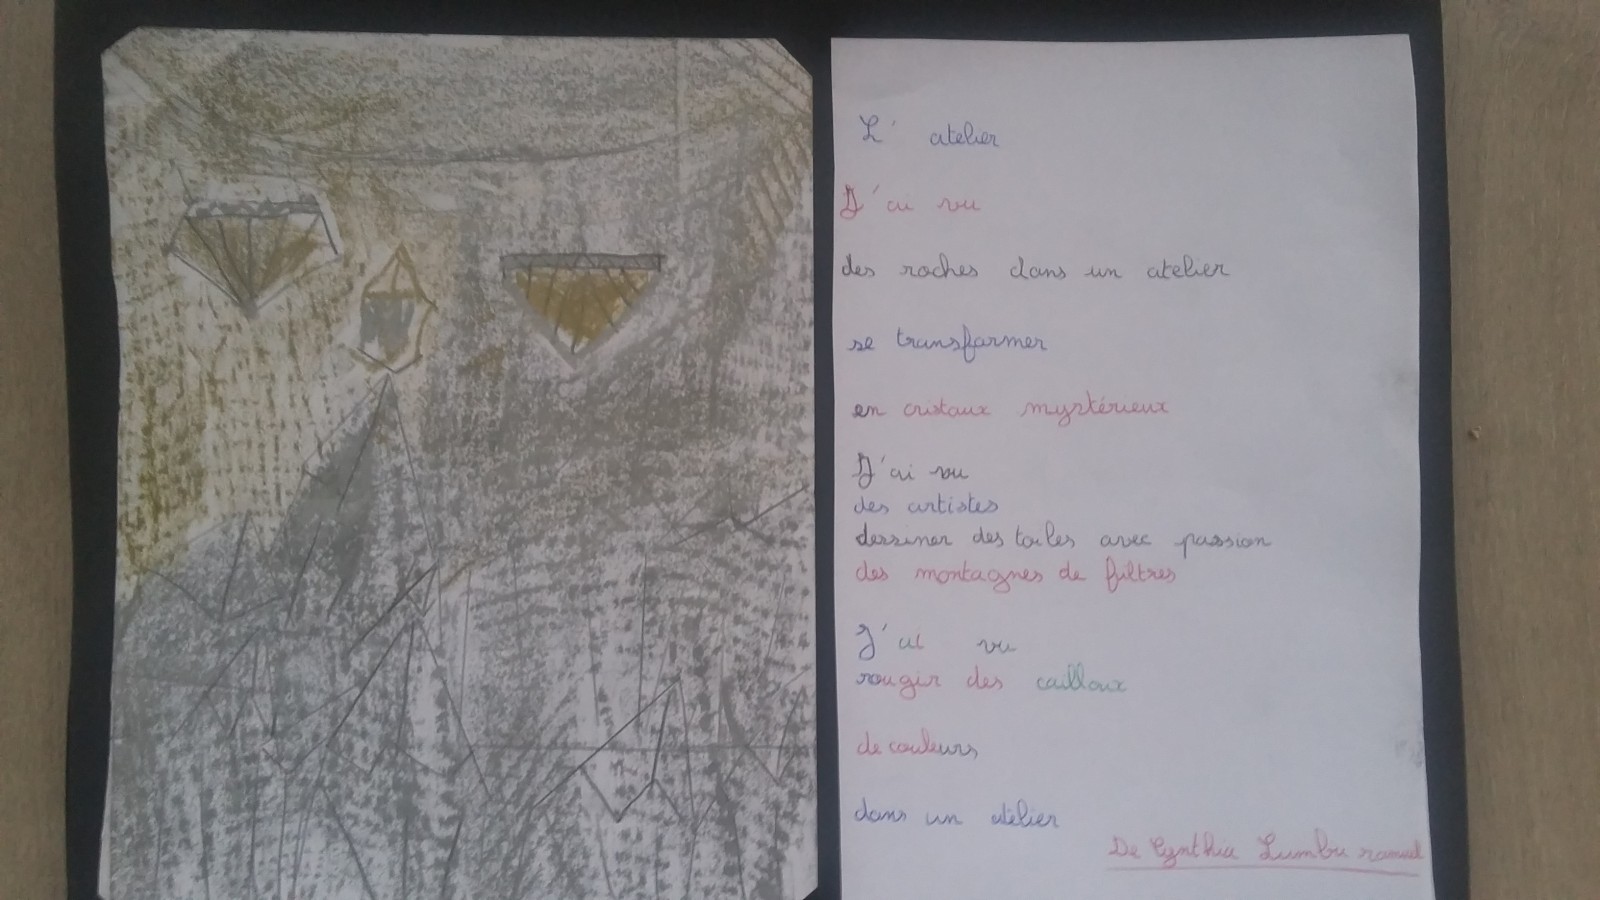 L' atelier
J'ai vu
des roches dans un atelier
se transformer
en cristaux mystérieux
J'ai vu
des artistes
dessiner des toiles avec passion
des montagnes de filtres
J'ai vu
rougir des cailloux
de couleurs
dans un atelier
De Cynthia Lumbu